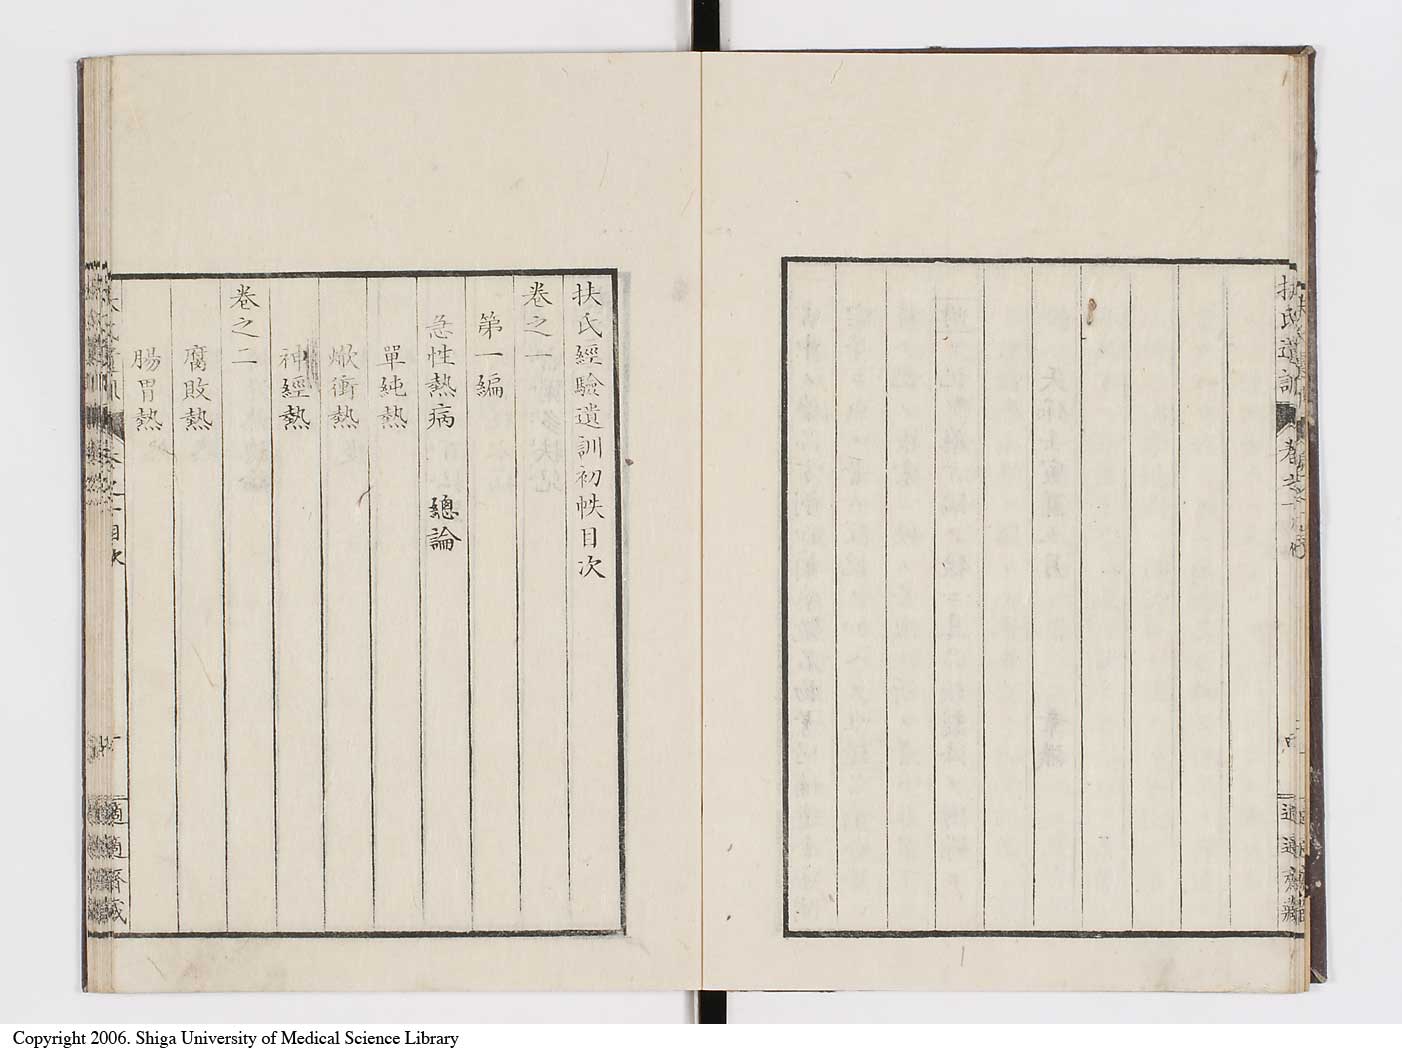 扶氏經驗遺訓初帙目次
卷之一
第一編
急性熱病 總論
單純熱
焮衝熱
神經熱
卷之二
腐敗熱
腸胃熱
目次
適適齋藏
扶氏遺訓
卷之一
適適齋藏
Copyright 2006. Shiga University of Medical Science Library